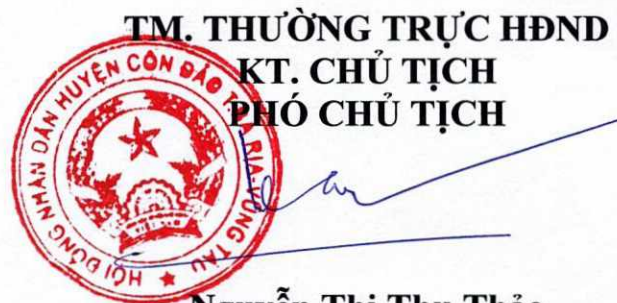 TM. THƯỜNG TRỰC HĐND
KT. CHỦ TỊCH
PHÓ CHỦ TỊCH
HỘI ĐỒNG NHÂN DÂN HUYỆN CÔN ĐẢO T. BÀ RỊA-VŨNG TÀU
Nguyễn Thị Thu Thảo